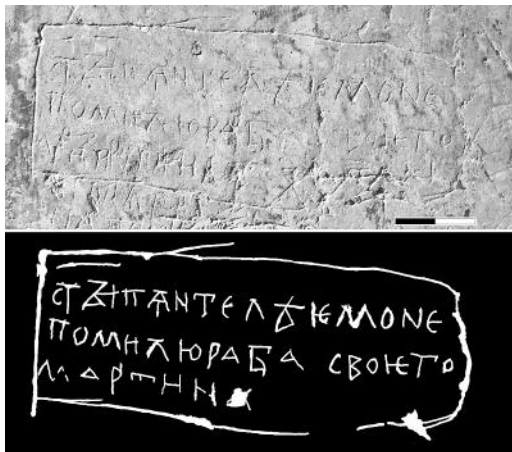 СТꙐИПАНТЕЛѢѤМОNЕ
ПОМИЛЮРАБА СВОѤГО
МАРТИНА